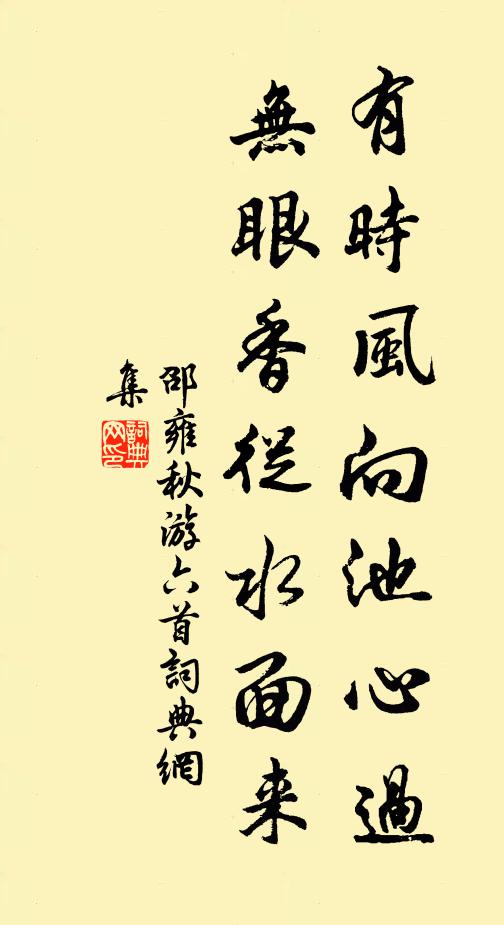 有時風向池心過
無眼香從水面来
邵雍秋游六首詞典網
集
詞典
网印